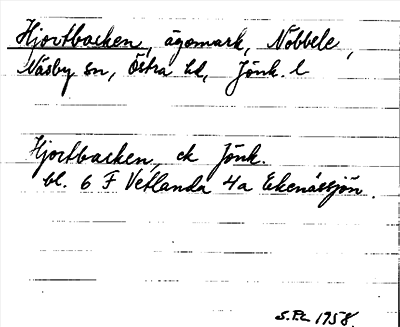 Hjortbacken, ägomark, Nöbbele,
Näsby sn, Östra hd, Jönk. l
Hjortbacken, ek Jönk.
bl. 6 F Vetlanda 4a Ekenässjön.
1958.